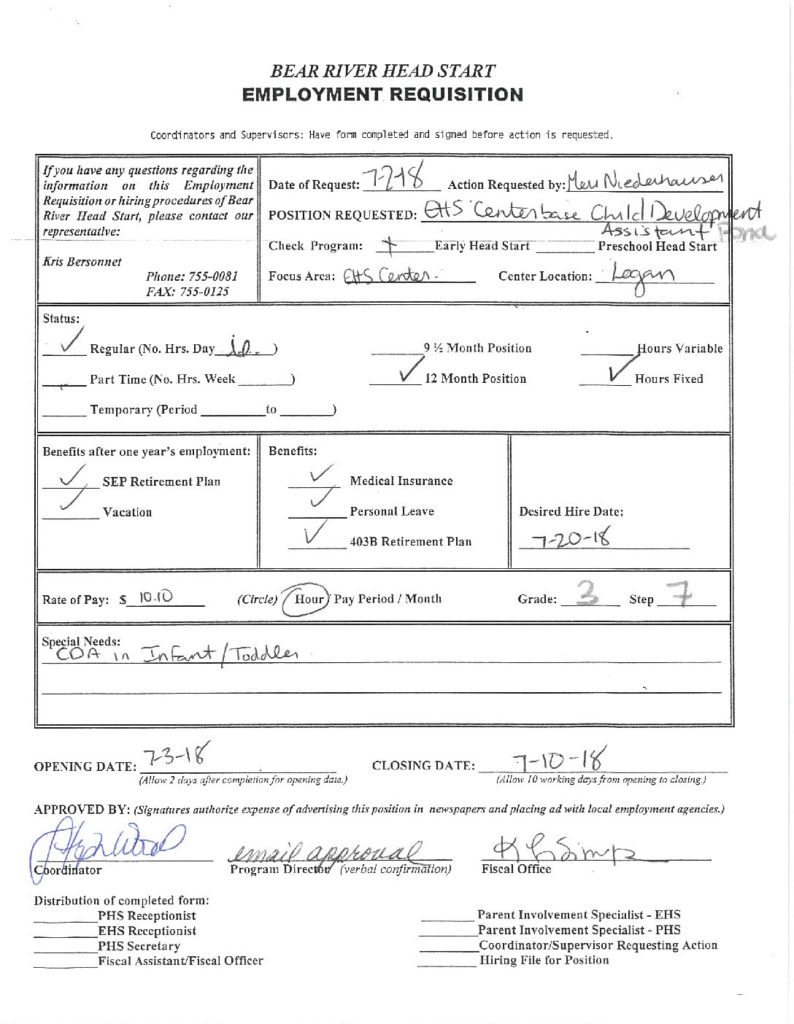 BEAR RIVER HEAD START
EMPLOYMENT REQUISITION
Coordinators and Supervisors: Have form completed and signed before action is requested.
If you have any questions regarding the information on this Employment Requisition or hiring procedures of Bear River Head Start, please contact our representative:
Kris Bersonnet
Phone: 755-0081
FAX: 755-0125
Date of Request: 7-2-18 Action Requested by: Meri Niederhauser
POSITION REQUESTED: EHS Centerbase Child Development
Assistant
Check Program: + Early Head Start ______ Preschool Head Start
Focus Area: EHS Center. Center Location: Logan
Status:
✓ Regular (No. Hrs. Day ) ______ 9 ½ Month Position ______ Hours Variable
______ Part Time (No. Hrs. Week ______) ✓ 12 Month Position ✓ Hours Fixed
______ Temporary (Period ______ to ______)
Benefits after one year's employment:
✓ SEP Retirement Plan
✓ Vacation
Benefits:
✓ Medical Insurance
✓ Personal Leave
✓ 403B Retirement Plan
Desired Hire Date:
7-20-18
Rate of Pay: $ 10.10 (Circle) Hour / Pay Period / Month Grade: 3 Step 7
Special Needs:
CDA in Infant/Toddler
OPENING DATE: 7-3-18 CLOSING DATE: 7-10-18
(Allow 2 days after completion for opening data.) (Allow 10 working days from opening to closing)
APPROVED BY: (Signatures authorize expense of advertising this position in newspapers and placing ad with local employment agencies.)
email approval
Coordinator Program Director (verbal confirmation) Fiscal Office
Distribution of completed form:
______ PHS Receptionist
______ EHS Receptionist
______ PHS Secretary
______ Fiscal Assistant/Fiscal Officer
______ Parent Involvement Specialist - EHS
______ Parent Involvement Specialist - PHS
______ Coordinator/Supervisor Requesting Action
______ Hiring File for Position